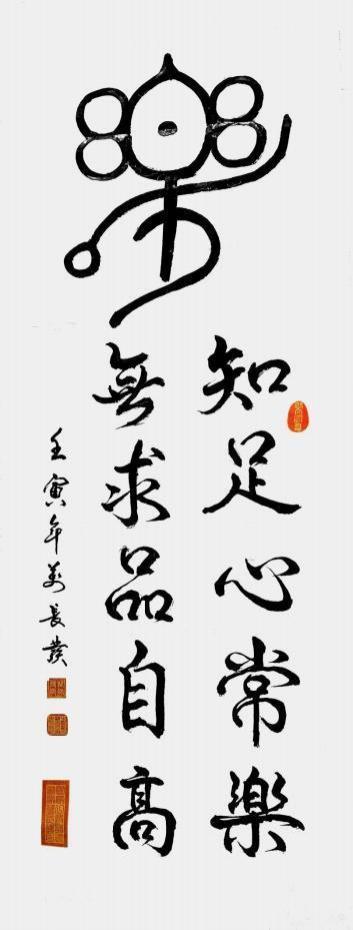 樂
知足心常樂
無求品自高
壬寅年姜長發